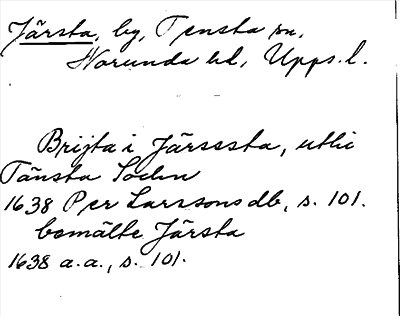 Järsta, by, Tensta sn,
Norunda hd, Upps. l.
Brijta i Järsesta, uthi
Tänsta Sochn
1638 Per Larssons db, s. 101.
bemälte Järsta
1638 a.a., s. 101.